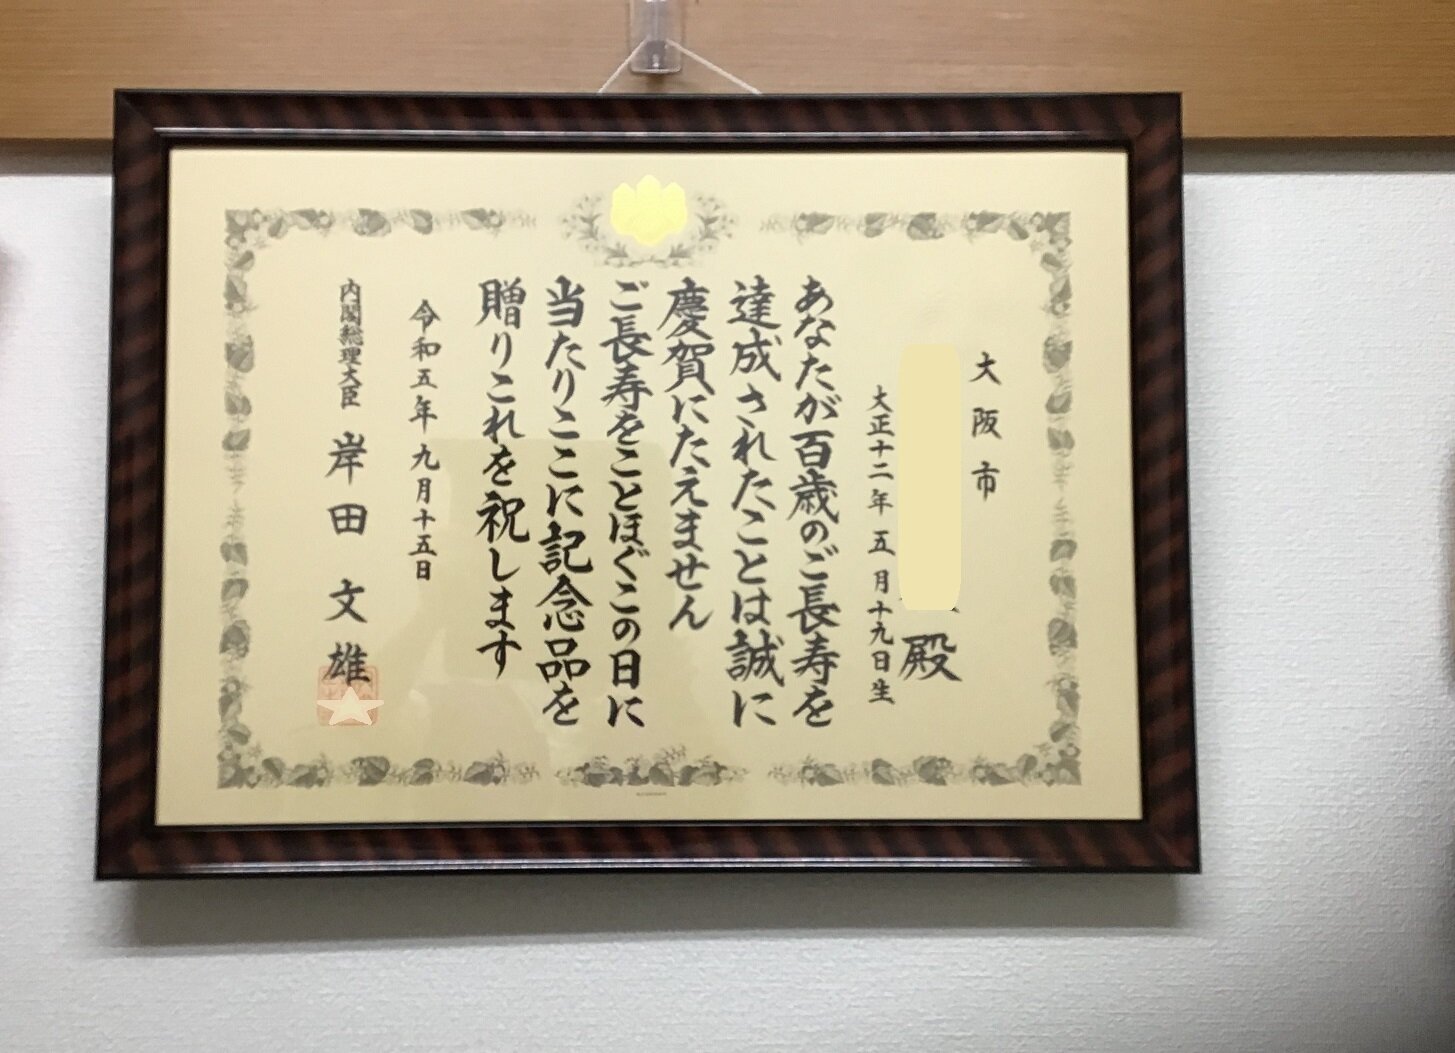 大阪市
殿
大正十二年五月十九日生
あなたが百歳のご長寿を
達成されたことは誠に
慶賀にたえません
ご長寿をことほぐこの日に
当たりここに記念品を
贈りこれを祝します
令和五年九月十五日
内閣総理大臣 岸田文雄